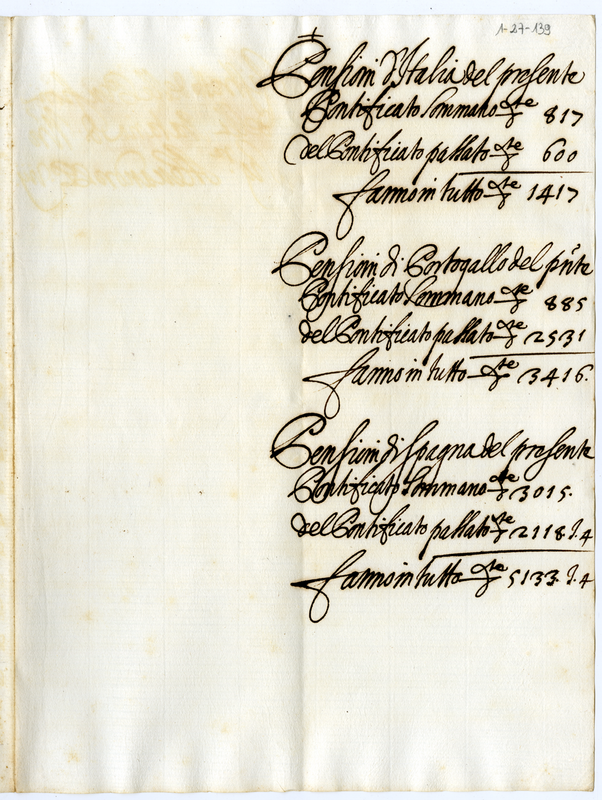 1-27-139
Pensioni d'Italia del presente
Pontificato sommano 817
del Pontificato passato 600
fanno in tutto 1417
Pensioni di Portogallo del pnte
Pontificato sommano 885
del Pontificato passato 2531
fanno in tutto 3416.
Pensioni di spagna del presente
Pontificato sommano 3015.
del Pontificato passato 2118. J. 4
fanno in tutto 5133. J. 4